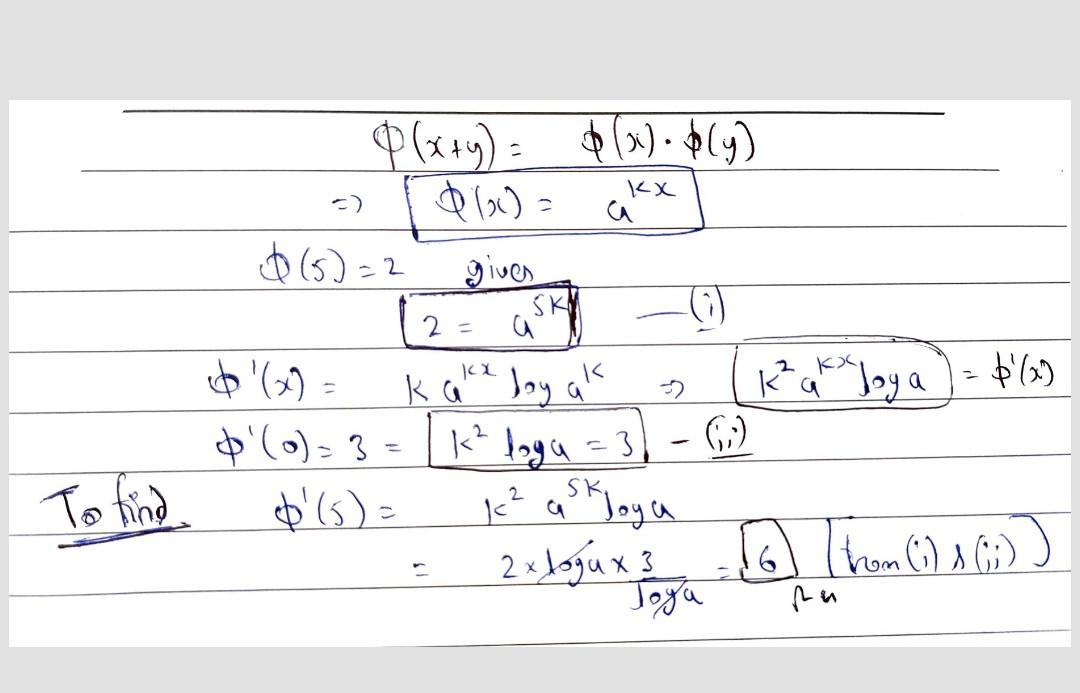 Φ(x+y) = ϕ(x)·ϕ(y)
=> Φ(x) = a^{kx}
ϕ(5) = 2 gives
2 = a^{5k} —(i)
ϕ'(x) = k a^{kx} log a^k => k² a^{kx} log a = ϕ'(x)
ϕ'(0) = 3 = k² log a = 3 - (ii)
To find ϕ'(5) = k² a^{5k} log a
= 2 × log a × 3/log a = 6 [from (i) & (ii)]